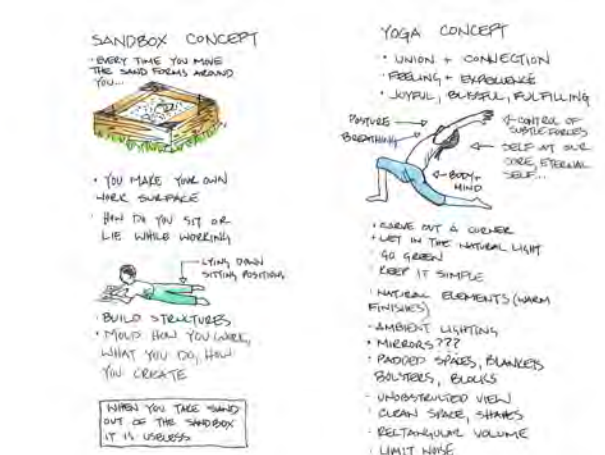 SANDBOX CONCEPT
• EVERY TIME YOU MOVE
THE SAND FORMS AROUND
YOU...
• YOU MAKE YOUR OWN
WORK SURFACE
• HOW DO YOU SIT OR
LIE WHILE WORKING
LYING DOWN
SITTING POSITIONS
• BUILD STRUCTURES
• MOLD HOW YOU WORK,
WHAT YOU DO, HOW
YOU CREATE
WHEN YOU TAKE SAND
OUT OF THE SANDBOX
IT IS USELESS
YOGA CONCEPT
• UNION + CONNECTION
• FEELING + EXPERIENCE
• JOYFUL, BLISSFUL, FULFILLING
POSTURE
BREATHING
CONTROL OF
SUBTLE FORCES
SELF AT OUR
CORE, ETERNAL
SELF...
BODY +
MIND
• CARVE OUT A CORNER
• LET IN THE NATURAL LIGHT
• GO GREEN
• KEEP IT SIMPLE
• NATURAL ELEMENTS (WARM
FINISHES)
• AMBIENT LIGHTING
• MIRRORS???
• PADDED SPACES, BLANKETS
BOLSTERS, BLOCKS
• UNOBSTRUCTED VIEW
• CLEAN SPACE, SHAPES
• RECTANGULAR VOLUME
• LIMIT NOISE